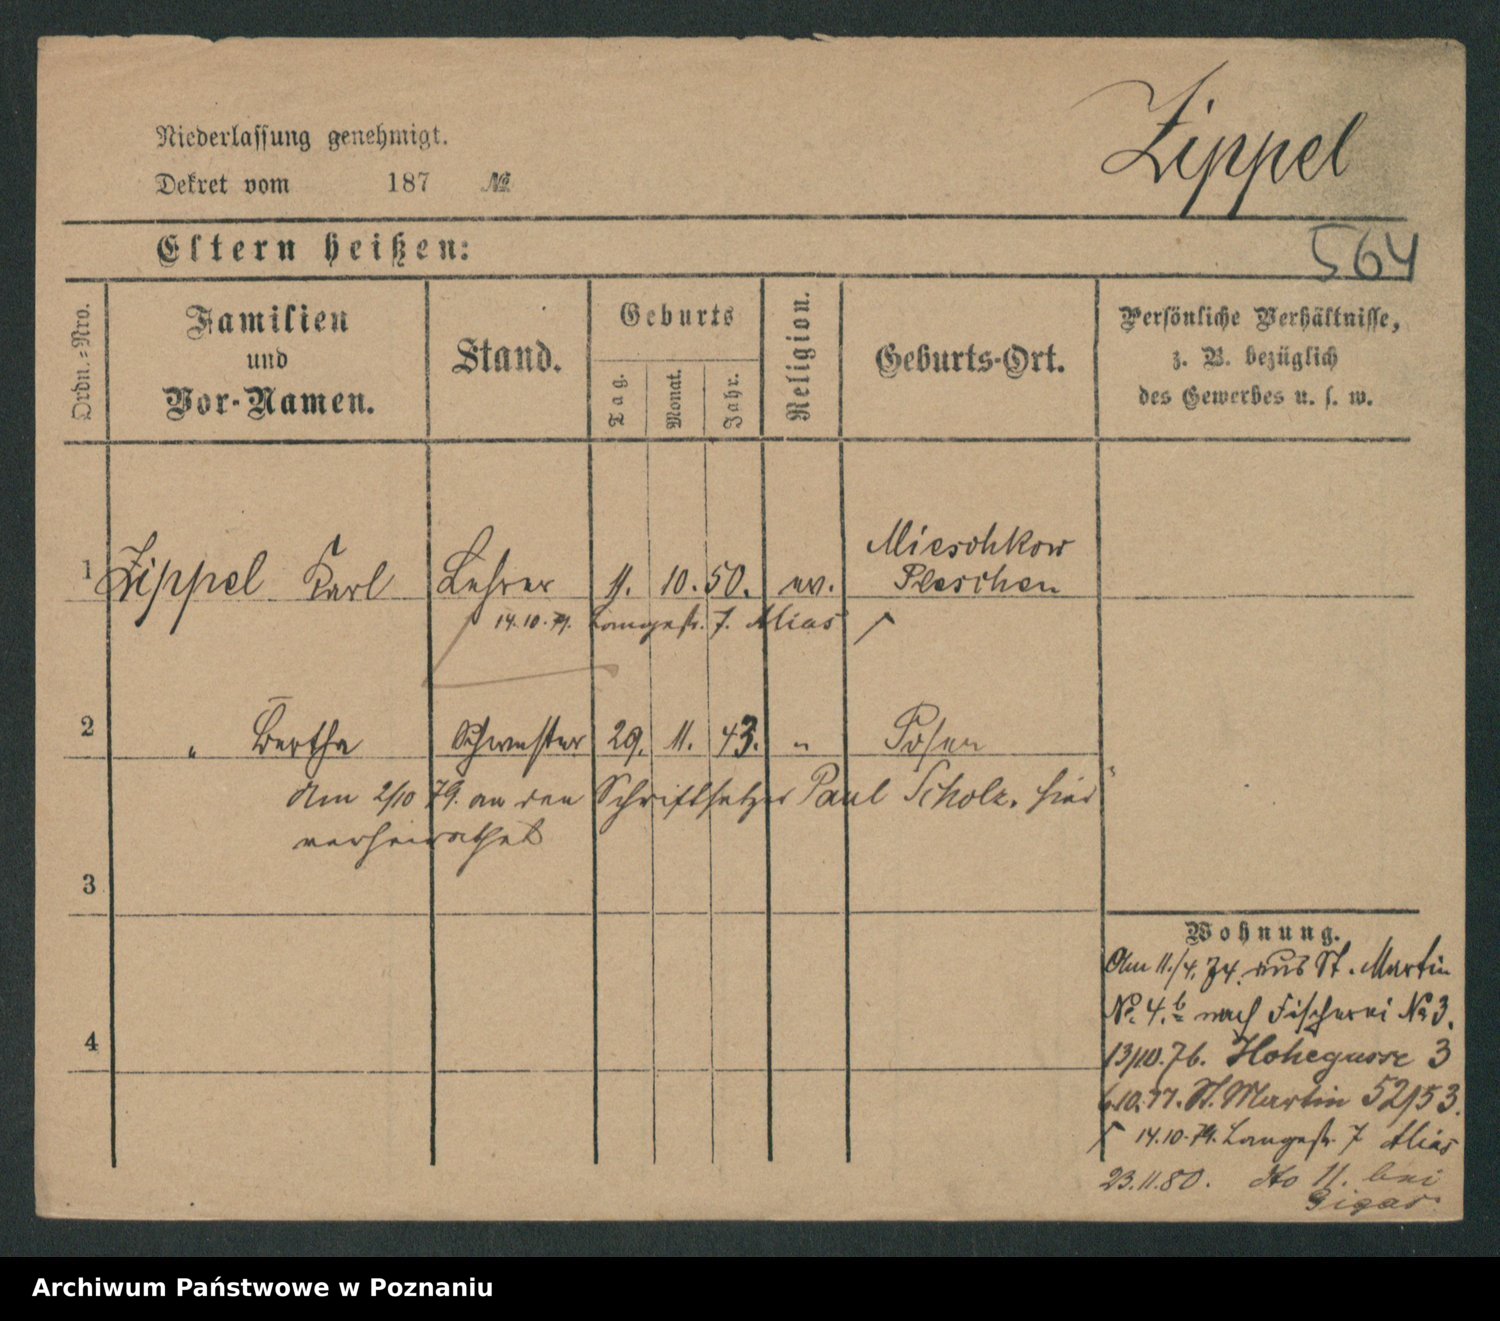 Zippel
Niederlassung genehmigt.
Dekret vom 187 №
Eltern heißen:
564
Ordn.=Nro.
Familien
und
Vor-Namen.
Stand.
Geburts
Tag.
Monat.
Jahr.
Religion.
Geburts-Ort.
Persönliche Verhältnisse,
z. B. bezüglich
des Gewerbes u. s. w.
1 Zippel Karl Lehrer 11. 10. 50. ev. Mieschkow
Pleschen
14.10.79. Langestr. 7. Alias
2 " Bertha Schwester 29. 11. 43. " Posen
Am 2/10 79. an den Schriftsetzer Paul Scholz, hier
verheirathet
3
4
Wohnung.
Am 11./4. 74. aus St. Martin
№ 4.b nach Fischerei № 3.
13/10.76. Hohegasse 3
6.10.77. St. Martin 52/53.
14.10.79. Langestr. 7 Alias
23.11.80. dto 11. bei
Gigas.
Archiwum Państwowe w Poznaniu